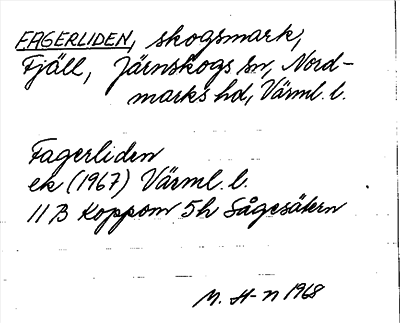 FAGERLIDEN, skogsmark,
Fjäll, Järnskogs sn, Nord-
marks hd, Värml. l.
Fagerliden
ek (1967) Värml. l.
11 B Koppom 5h Sågesätern
M. H-n 1968